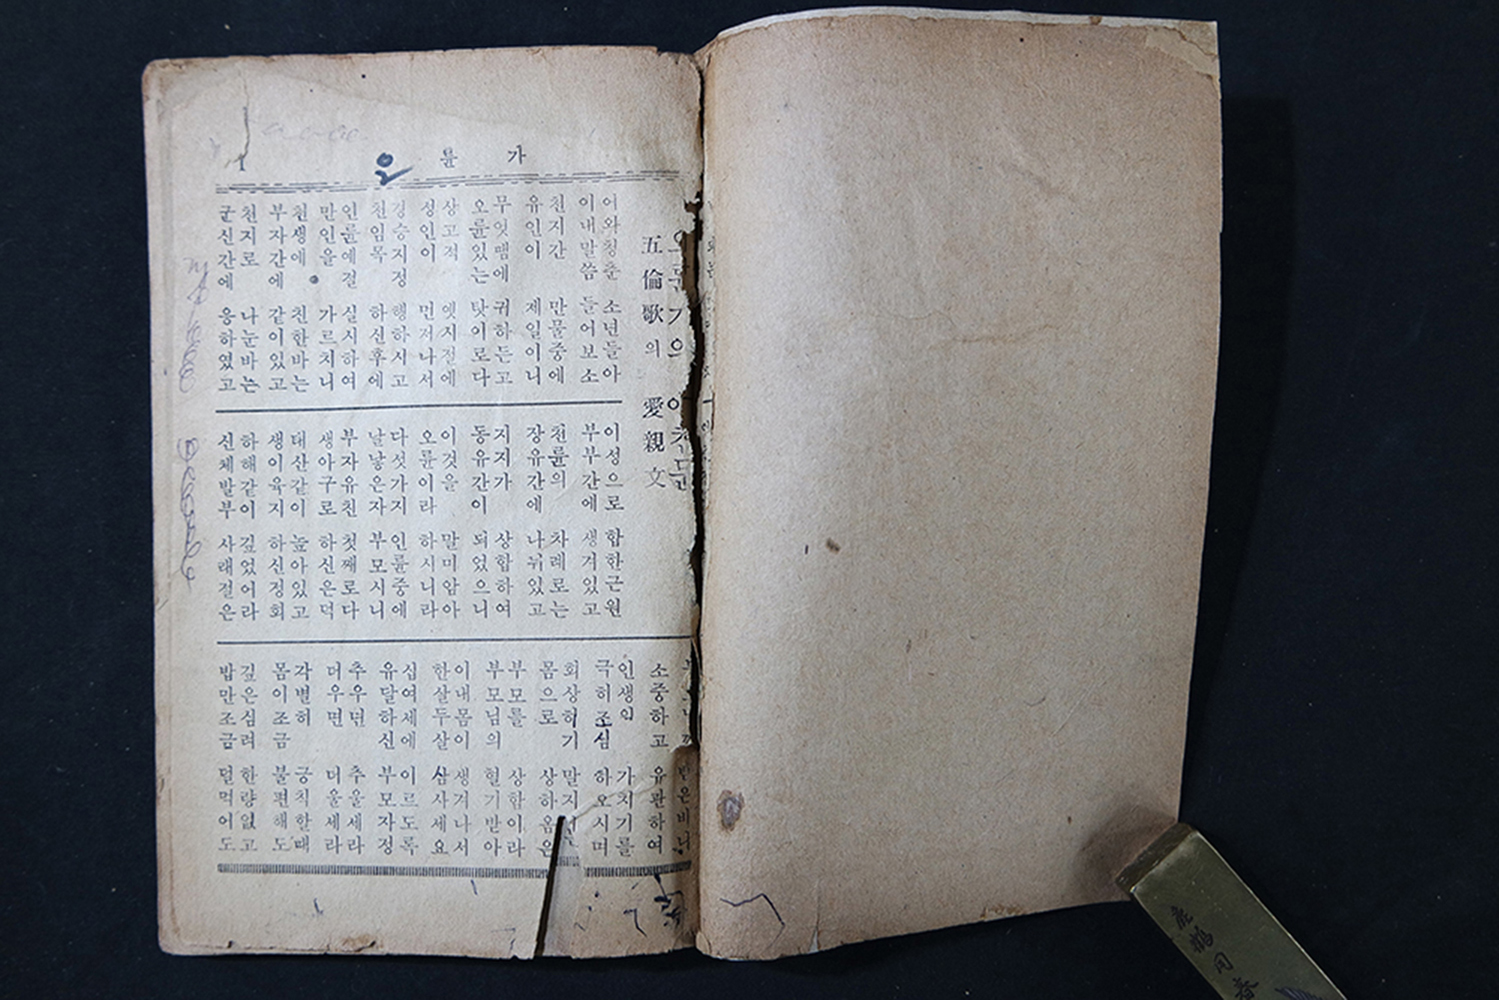 륜가
1
오륜가의 애친문
五倫歌의 愛親文
어와청춘 소년들아
이내말씀 들어보소
천지간 만물중에
유인이 제일이니
무엇땜에 귀하든고
오륜있는 탓이로다
상고적 옛시절에
성인이 먼저나서
경승지정 행하시고
천임목 하신후에
인륜예절 실시하여
만인을 가르치니
천생에 친한바는
부자간에 같이있고
천지로 나눈바는
군신간에 응하였고
이성으로 합한근원
부부간에 생겨있고
천륜의 차례로는
장유간에 나뉘있고
지지가 상합하여
동유간이 되었으니
이것을 말미암아
오륜이라 하시니라
다섯가지 인륜중에
날낳은자 부모시니
부자유친 첫째로다
생아구로 하신은덕
태산같이 높아있고
생이육지 하신정회
하해같이 깊었어라
신체발부 사래절은
받은비니
소중하고 유관하여
인생의 가치기를
극히조심 하오시며
회상하기
몸으로 상하옴은
부모를 상함이라
부모님의 혈기받아
이내몸이 생겨나서
한살두살 삼사세요
십여세에 이르도록
유달하신 부모자정
추우면 추울세라
더우면 더울세라
각별히 궁칙할때
몸이조금 불편해도
깊은심려 한량없고
밥만조금 덜먹어도